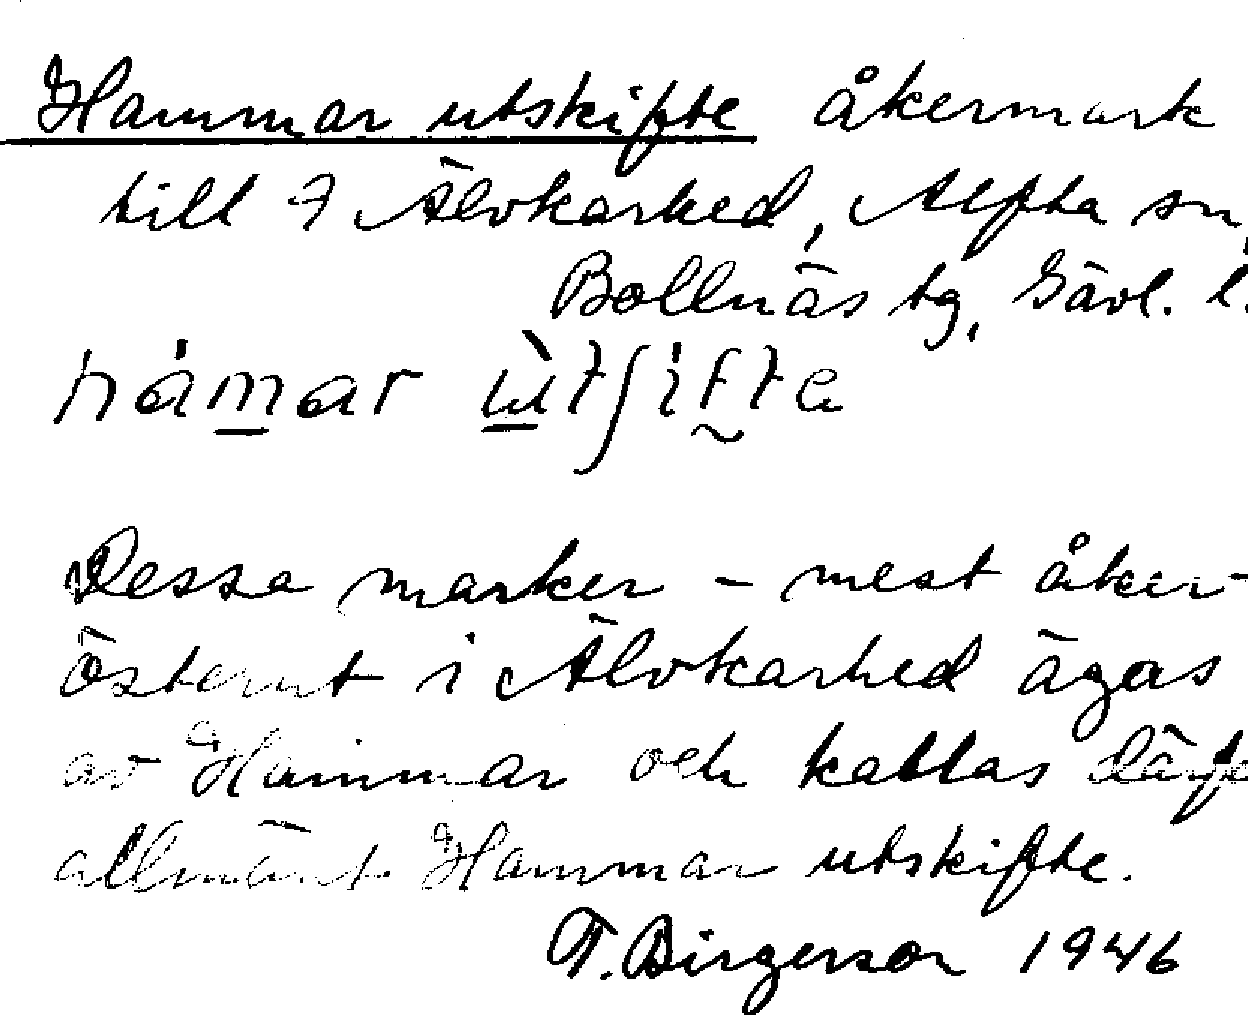 Hammar utskifte åkermark
till 7 Älvkarhed, Alfta sn,
Bollnäs tg, Gävl. l.
hámar ùtʃifte
Dessa marker – mest åker-
österut i Älvkarhed ägas
av Hammar och kallas därfö
allmänt Hammar utskifte.
T. Birgerson 1946